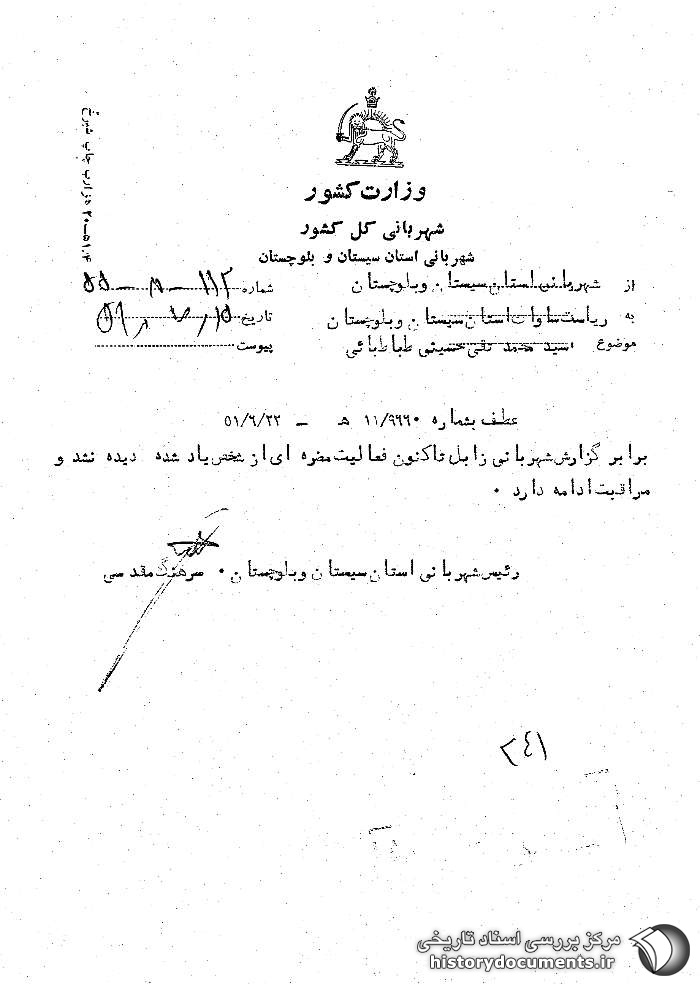 وزارت کشور
شهربانی کل کشور
شهربانی استان سیستان و بلوچستان
از شهربانی استان سیستان و بلوچستان
شماره
به ریاست ساواک استان سیستان و بلوچستان
تاریخ
موضوع سید محمد تقی حسینی طباطبائی
پیوست
عطف بشماره ۱۱/۹۹۶۰ هـ – ۵۱/۶/۲۲
برابر گزارش شهربانی زابل تاکنون فعالیت مضره ای از شخص یاد شده دیده نشد و
مراقبت ادامه دارد .
رئیس شهربانی استان سیستان و بلوچستان . سرهنگ مقدسی
۲۴۱
مرکز بررسی اسناد تاریخی
historydocuments.ir